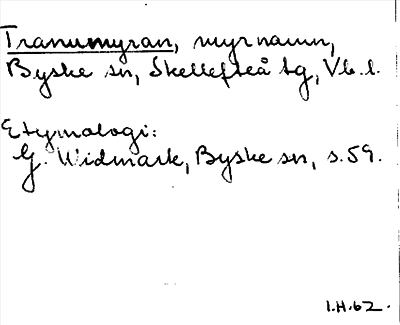 Tranumyran, myrnamn,
Byske sn, Skellefteå tg, Vb. l.
Etymologi:
G. Widmark, Byske sn, s. 59.
I.H.62.